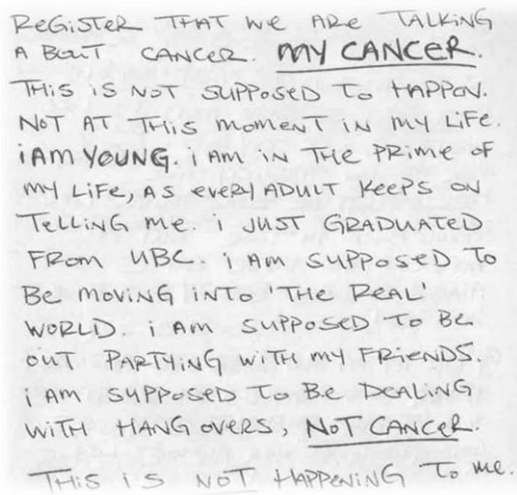 REGISTER THAT WE ARE TALKING
A BOUT CANCER. MY CANCER.
THIS IS NOT SUPPOSED TO HAPPEN.
NOT AT THIS MOMENT IN MY LIFE.
i AM YOUNG. i AM IN THE PRIME OF
MY LIFE, AS EVERY ADULT KEEPS ON
TELLING ME. i JUST GRADUATED
FROM UBC. i AM SUPPOSED TO
BE MOVING INTO 'THE REAL'
WORLD. i AM SUPPOSED TO BE
OUT PARTYING WITH MY FRIENDS.
i AM SUPPOSED TO BE DEALING
WITH HANG OVERS, NOT CANCER.
THIS IS NOT HAPPENING TO ME.